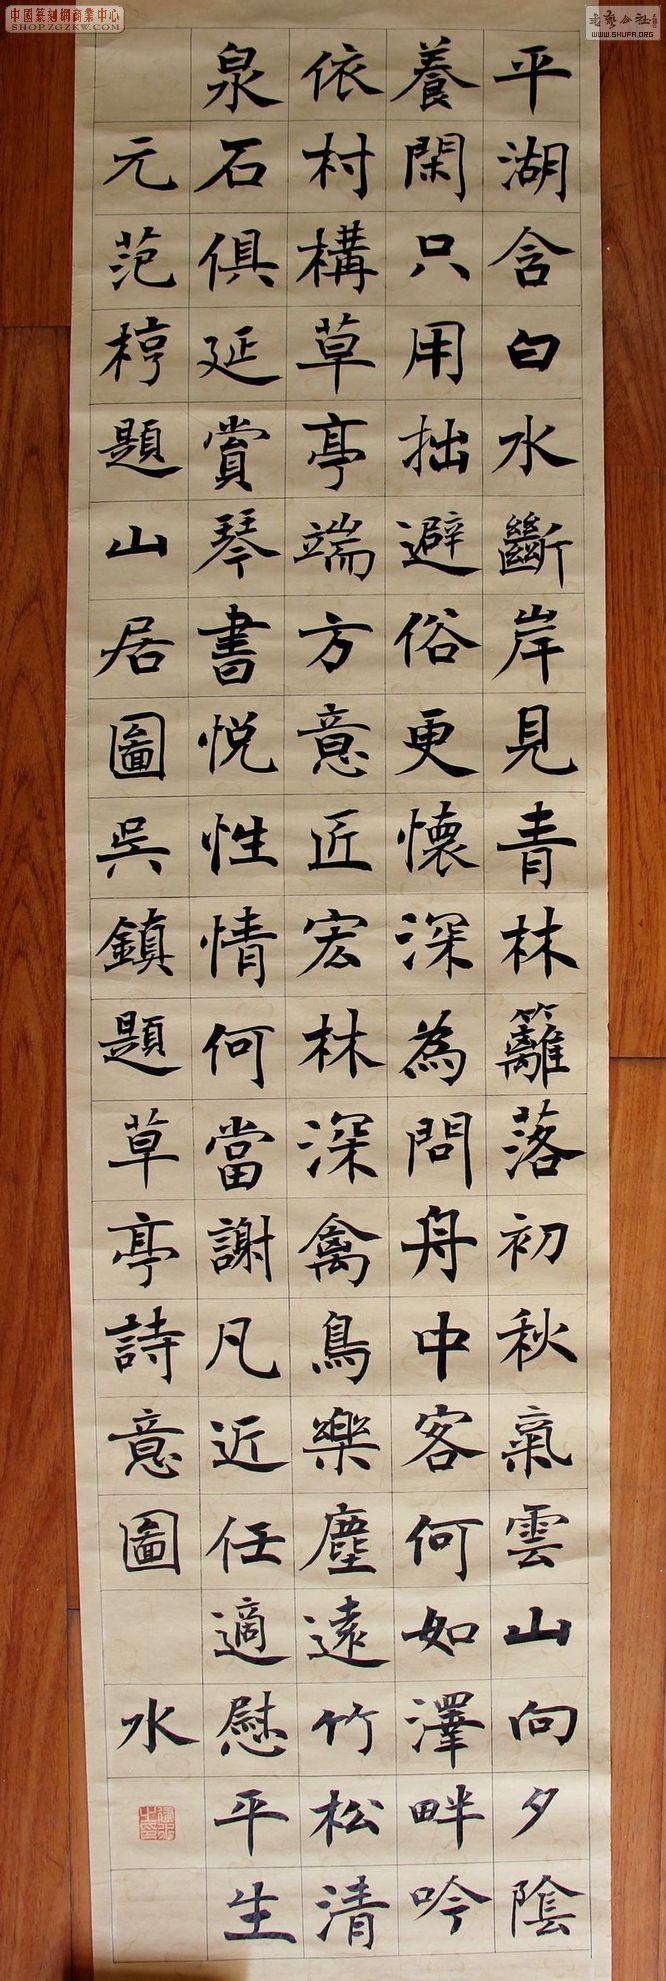 中國篆刻網商業中心
SHOP.ZGZKW.COM
WWW.SHUFA.ORG
平湖含白水斷岸見青林籬落初秋氣雲山向夕陰
養閑只用拙避俗更懷深為問舟中客何如澤畔吟
依村構草亭端方意匠宏林深禽鳥樂塵遠竹松清
泉石俱延賞琴書悅性情何當謝凡近任適慰平生
元范梈題山居圖吳鎮題草亭詩意圖 水